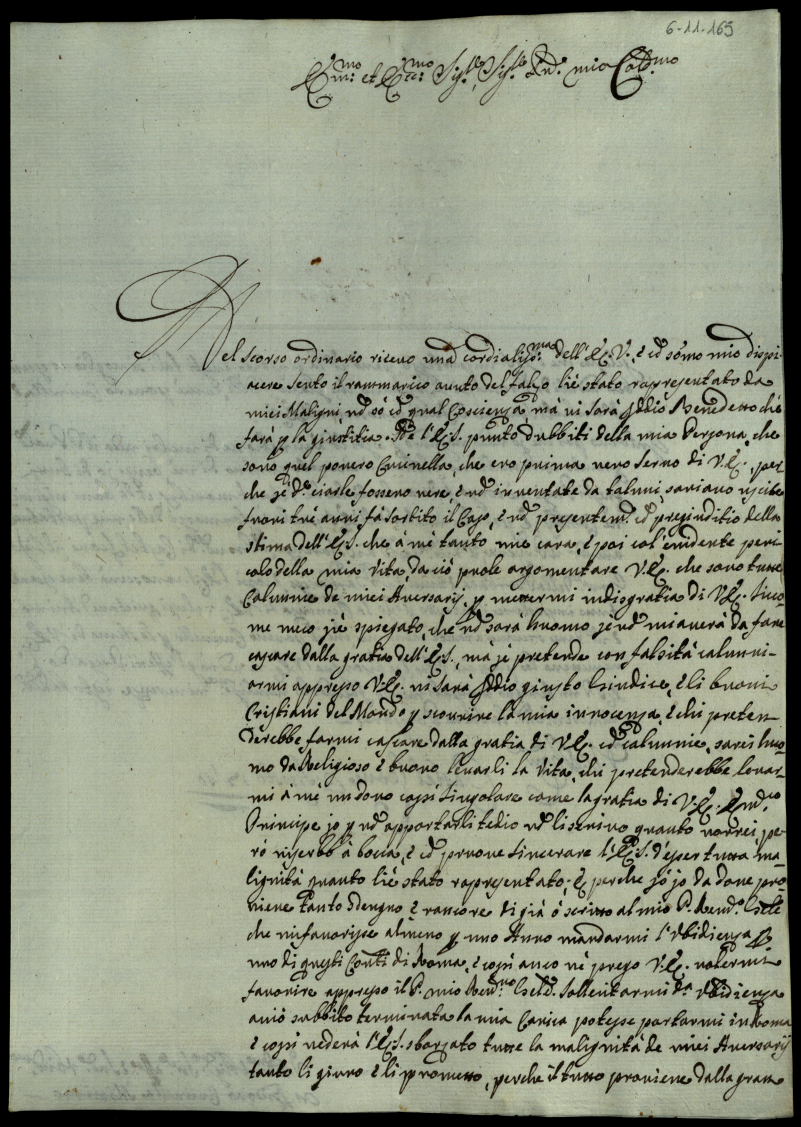 6-11-169
Em.mo et Ecc.mo Sig.re Sig.re Pnē. mio Coll.mo
Nel scorso ordinario ricevo una cordialiss.ma dell'E. V. è cō sōmo mio dispi-
acere sento il rammarico auuto del falso li è stato rapresentato da
miei Maligni nō sò cō qual Coscienza mà vi sarà Iddio Benedetto che
farà p la giustitia. Nè l'E.S. punto dubbiti della mia Persona, che
sono quel povero Cucinella, che ero prima vero servo di V.E., per
che se d.e ciarle fossero vere, è nō inventate da taluni, sariano uscite
fuori trè anni fà sortito il Caso, è nō presentem.e cō pregiuditio della
stima dell'E.S. che à mè tanto mi è cara, è poi col'evidente peri-
colo della mia Vita, da ciò puole argomentare V.E. che sono tutte
Calunnie de miei Aversarij, p mettermi in disgratia di V.E. sico-
me meco s'è spiegato, che nō sarà huomo se nō mi averà da fare
cascare dalla gratia dell'E.S., mà se pretende con falsità calunni-
armi appresso V.E. vi sarà Iddio giusto Giudice, è li buoni
Cristiani del Mondo p scovrire la mia innocenza, è chi preten-
derebbe farmi cascare dalla gratia di V.E. cō calunnie, sarei huo-
mo da Religioso è buono levarli la Vita, chi pretenderebbe levar-
mi à mè un dono così singolare come la gratia di V.E. Em.mo
Principe jo p nō apportarli tedio nō li scrivo quanto vorrei, pe-
rò riserbo à bocca, è cō pruove sincerare l'E.S. d'esser tutta ma-
lignità quanto li è stato rapresentato. E perche sò jo da dove pro-
viene tanto sdegno è rancore di già ò scritto al mio P. Rend.o G̃ele
che mi favorisse almeno p uno Anno mandarmi l'Ubidienza p
uno di questi Conti di Roma, è così anco nè prego V.E. volermi
favorire appresso il P. mio Rend.mo G̃ele. sollecitarmi d.a Ubidienza
acciò subbito terminata la mia Carica potesse portarmi in Roma
è così vederà l'E.S. sbarzato tutte la malignità de miei Aversarij
tanto li giuro è li prometto, perche il tutto proviene dalla gran